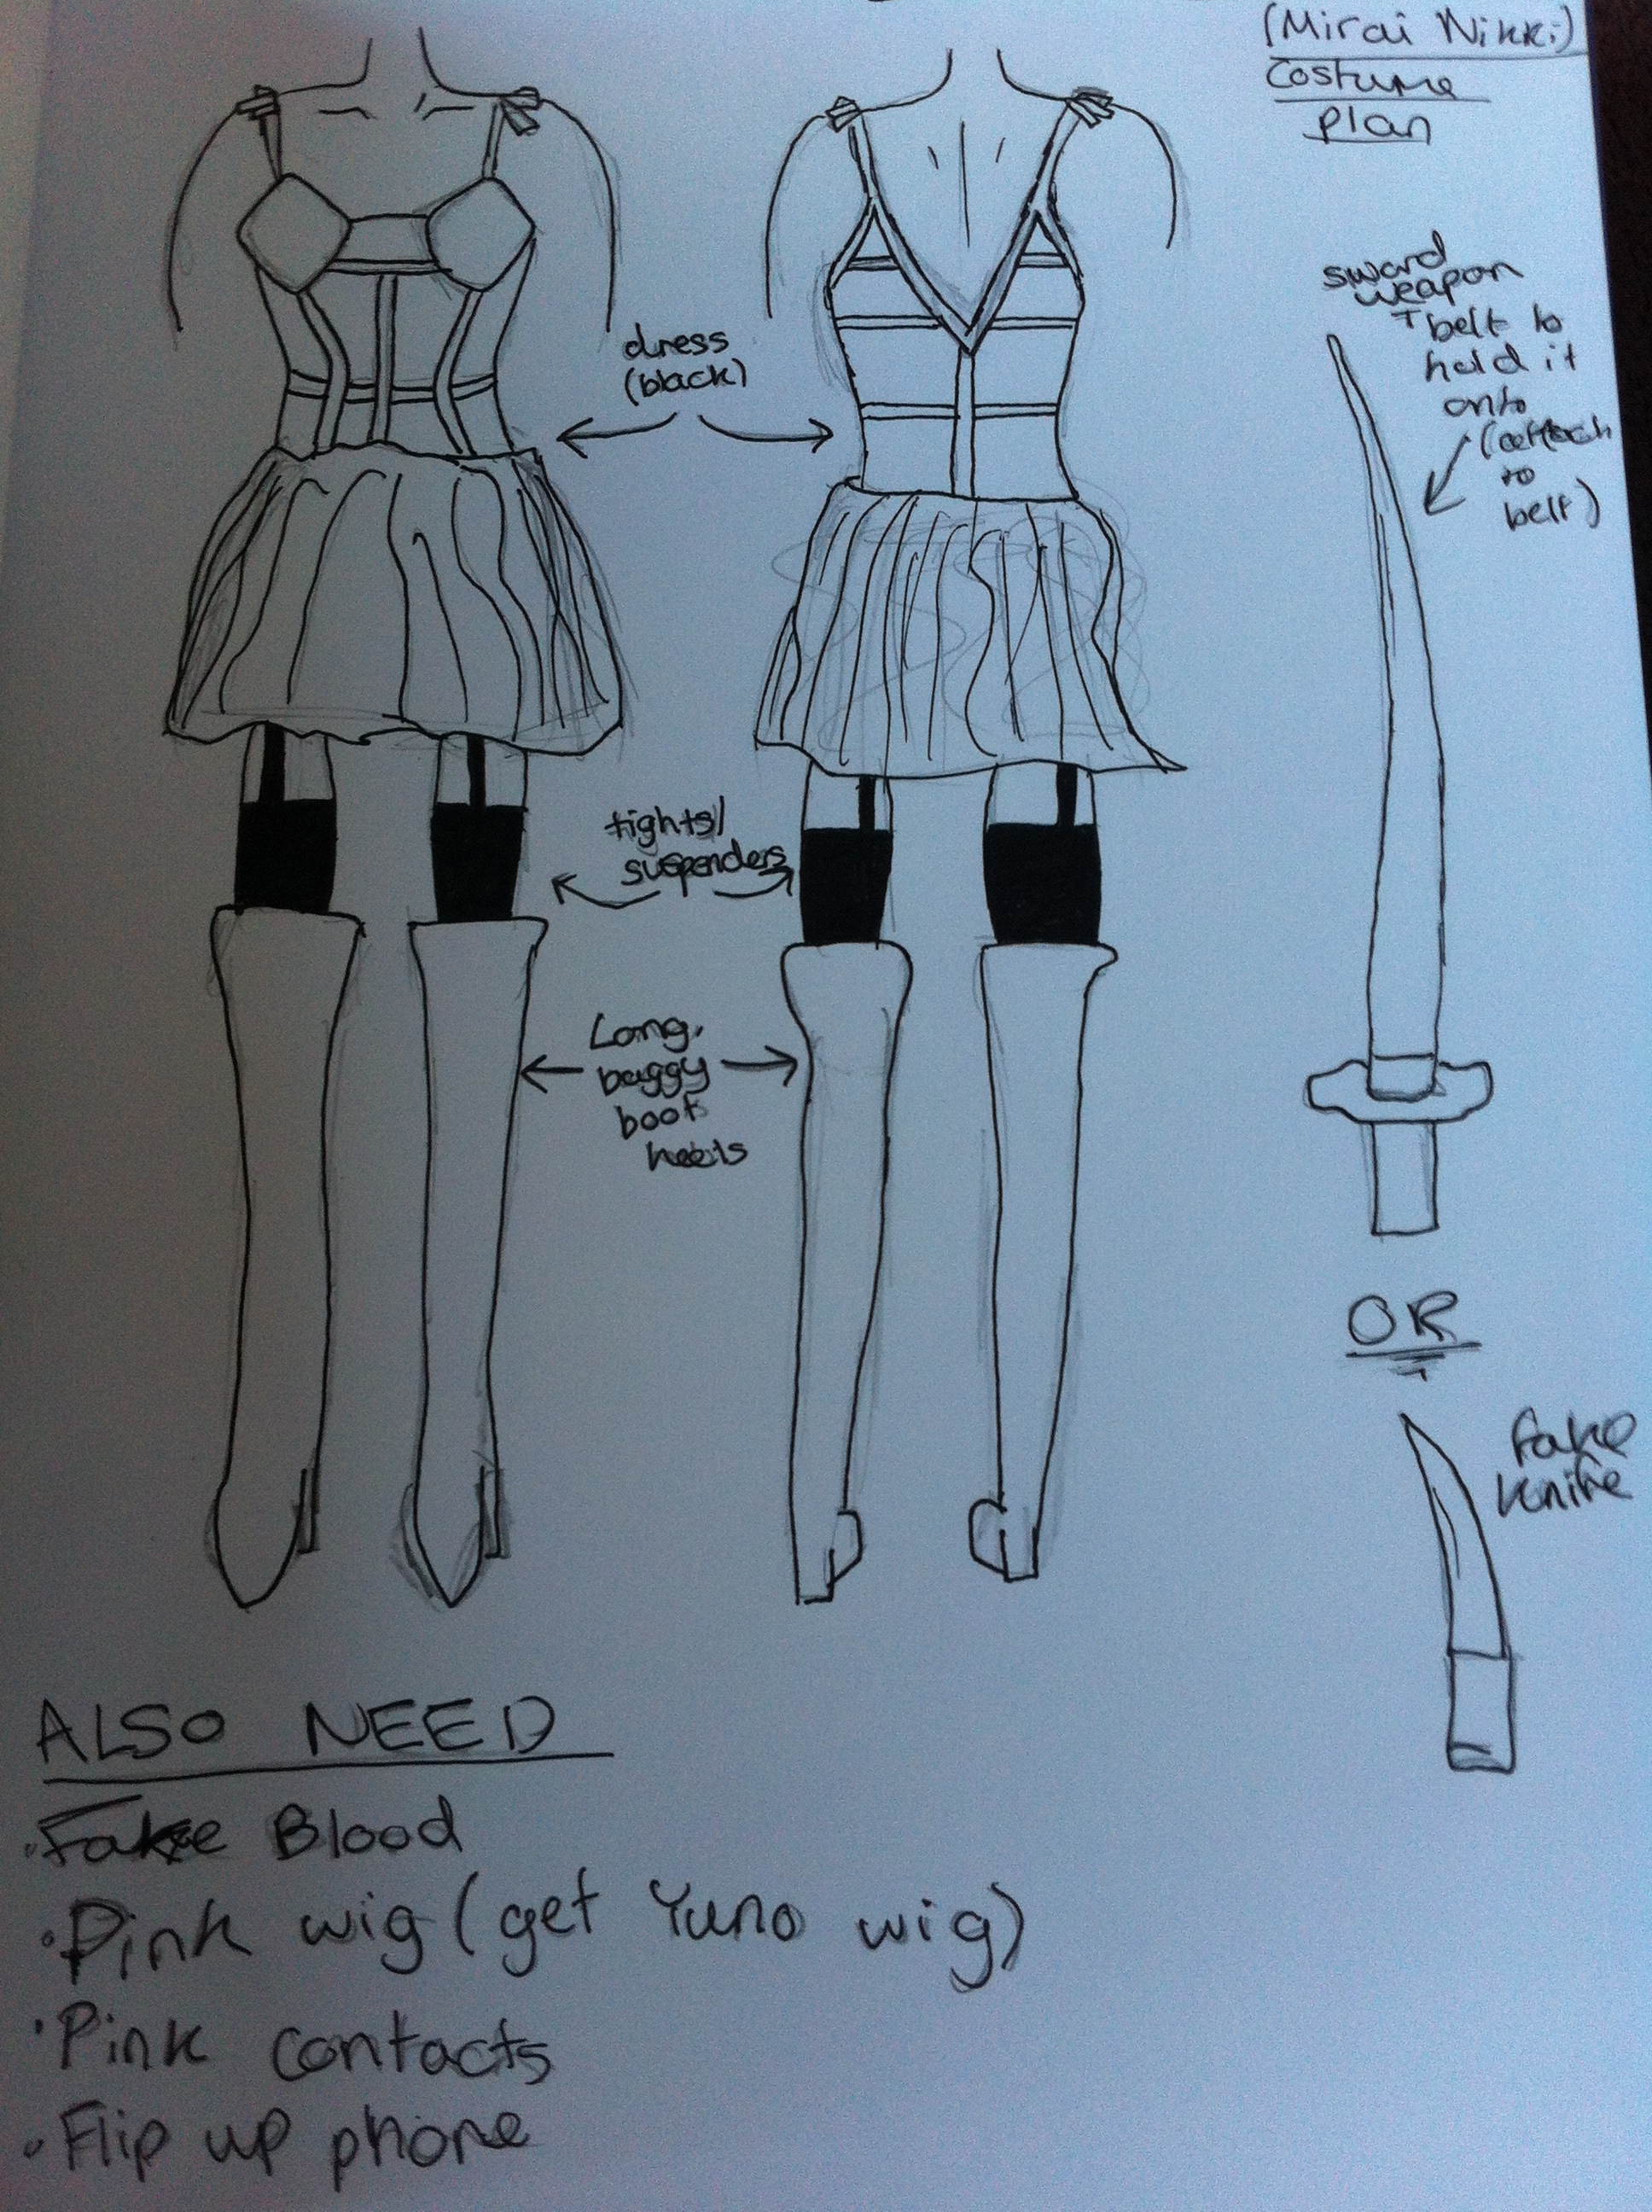 (Mirai Nikki)
Costume
plan
sword
weapon
+ belt to
hold it
onto
(attach
to
belt)
dress
(black)
tights/
suspenders
Long,
baggy
boot
heels
OR
Fake
knife
ALSO NEED
· Fake Blood
· Pink wig (get Yuno wig)
· Pink contacts
· Flip up phone